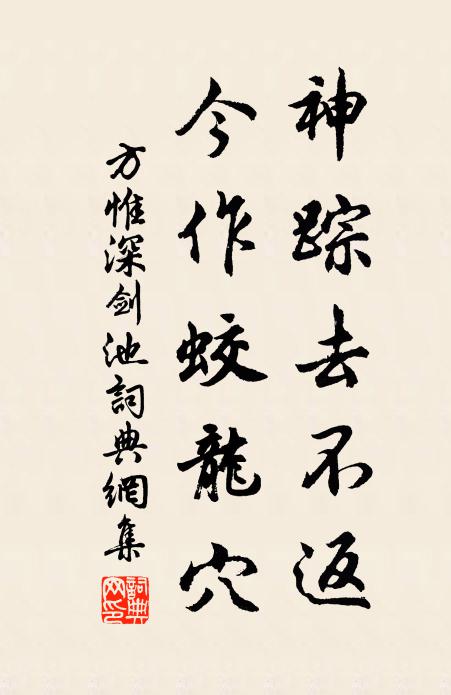 神踪去不返
今作蛟龍穴
方惟深剑池詞典網集
詞典网印